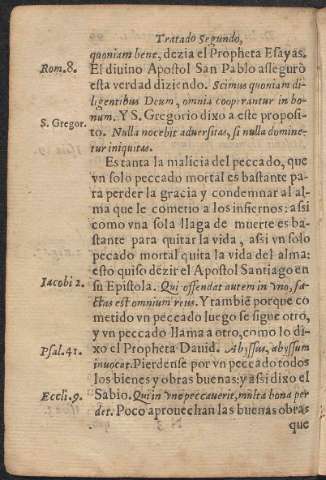 Tratado Segundo,
quoniam bene, dezia el Propheta Esayas.
Rom. 8. El diuino Apostol San Pablo asseguró
esta verdad diziendo. Scimus quoniam di-
ligentibus Deum, omnia cooperantur in bo-
num. Y S. Gregorio dixo a este proposi-
S. Gregor. to. Nulla nocebit aduersitas, si nulla domine-
tur iniquitas.
Es tanta la malicia del peccado, que
vn solo peccado mortal es bastante pa-
ra perder la gracia y condemnar al al-
ma que le cometio a los infiernos: assi
como vna sola llaga de muerte es ba-
stante para quitar la vida, assi vn solo
pecado mortal quita la vida del alma:
esto quiso dezir el Apostol Santiago en
Iacobi 2. su Epistola. Qui offendat autem in vno, fa-
ctus est omnium reus. Y tambiē porque co
metido vn peccado luego se sigue otro,
y vn peccado llama a otro, como lo di-
Psal. 41. xo el Propheta Dauid. Abyssus, abyssum
inuocat. Pierdense por vn peccado todos
los bienes y obras buenas: y assi dixo el
Eccli. 9. Sabio. Qui in vno peccauerit, multa bona per
det. Poco aprouechan las buenas obras
que